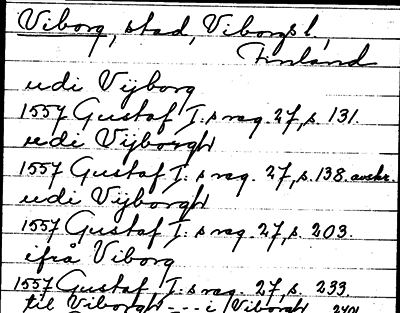 Viborg, stad, Viborgs l,
Finland
udi Vijborg
1557 Gustaf I:s reg. 27, s. 131.
udi Vijborgh
1557 Gustaf I:s reg. 27, s. 138 avskr.
udi Vijborgh
1557 Gustaf I:s reg. 27, s. 203.
ifrå Viborg
1557 Gustaf I:s reg. 27, s. 233
til Viborgh --- i Viborgh